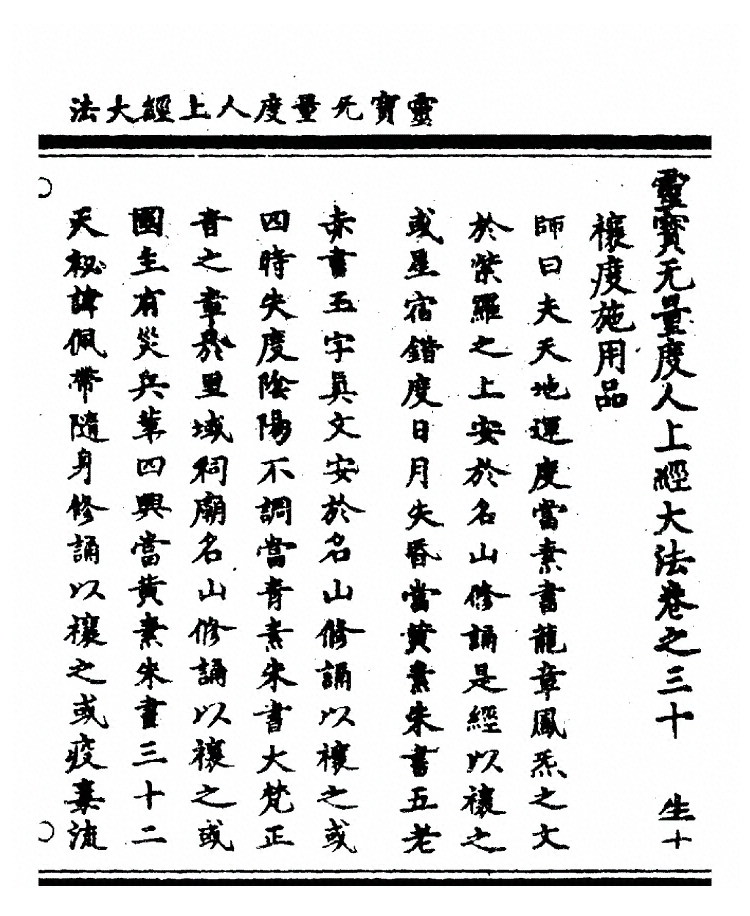 靈寶无量度人上經大法
靈寶无量度人上經大法卷之三十　生十
禳度施用品
師曰夫天地運度當素書龍章鳳炁之文
於紫羅之上安於名山修誦是經以禳之
或星宿錯度日月失昏當黃素朱書五老
赤書玉字眞文安於名山修誦以禳之或
四時失度陰陽不調當青素朱書大梵正
音之章於里域祠廟名山修誦以禳之或
國主有災兵革四興當黃素朱書三十二
天秘諱佩帶隨身修誦以禳之或疫毒流